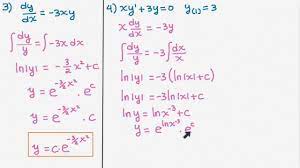 3) dy/dx = -3xy
∫ dy/y = ∫ -3x dx
ln|y| = -3/2 x² + c
y = e^(-3/2 x²) · e^c
y = c · e^(-3/2 x²)
4) xy' + 3y = 0 y(1) = 3
x dy/dx = -3y
∫ dy/y = -3 ∫ dx/x
ln|y| = -3 (ln|x| + c)
ln|y| = -3 ln|x| + c
ln y = ln x⁻³ + c
y = e^(ln x⁻³) · e^c